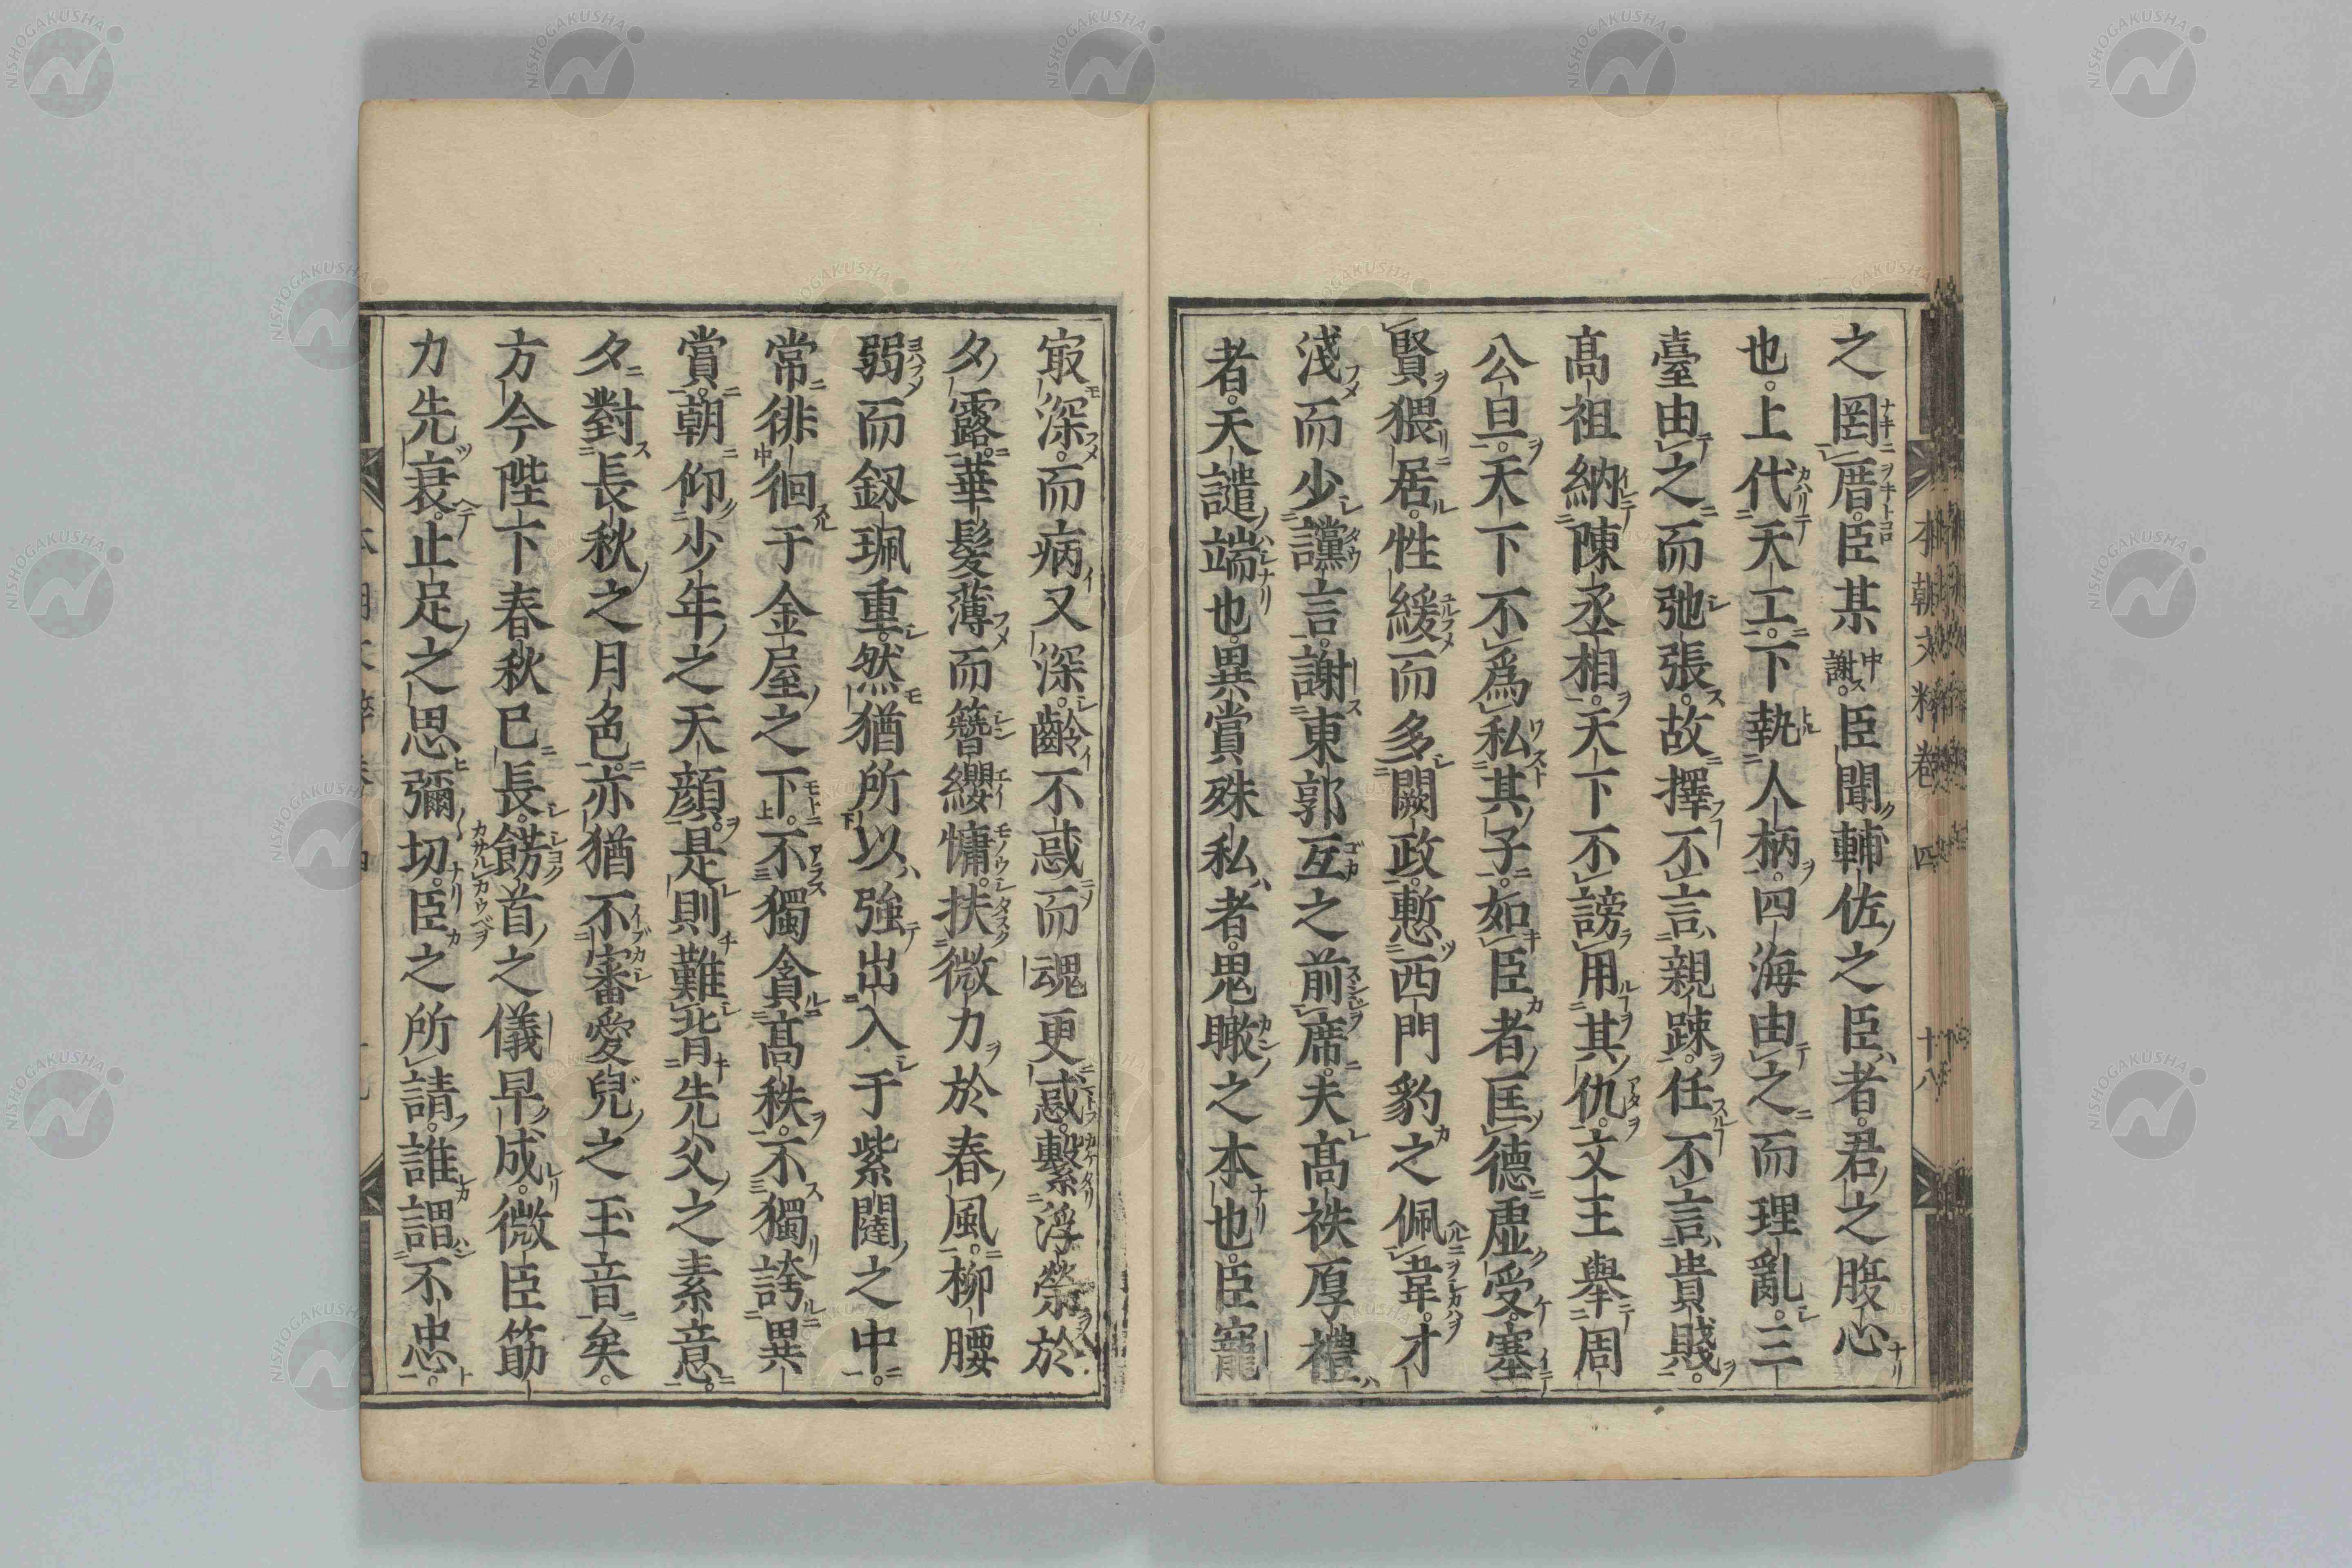 之罔厝。臣某中謝。臣聞輔佐之臣者。君之腹心
也。上代天工。下執人柄。四海由之而理亂。三
臺由之而弛張。故擇不言親踈。任不言貴賤。
髙祖納陳丞相。天下不謗用其仇。文王舉周
公旦。天下不爲私其子。如臣者匡德虚受。塞
賢猥居。性緩而多闕政。慙西門豹之佩韋。才
淺而少讜言。謝東郭互之前席。夫髙祑厚禮
者。天譴端也。異賞殊私者。鬼瞰之本也。臣寵
㝡深。而病又深。齡不惑而魂更惑。繫浮榮於
夕露。華髮薄而簪纓慵。扶微力於春風。柳腰
弱而釼珮重。然猶所以強出入于紫闥之中。
常徘徊于金屋之下。不獨貪髙秩。不獨誇異
賞。朝仰少年之天顔。是則難背先父之素意。
夕對長秋之月色。亦猶不審愛兒之玉音矣。
方今陛下春秋已長。餝首之儀早成。微臣筋
力先衰。止足之思彌切。臣之所請。誰謂不忠。
本朝文粹卷四　十八